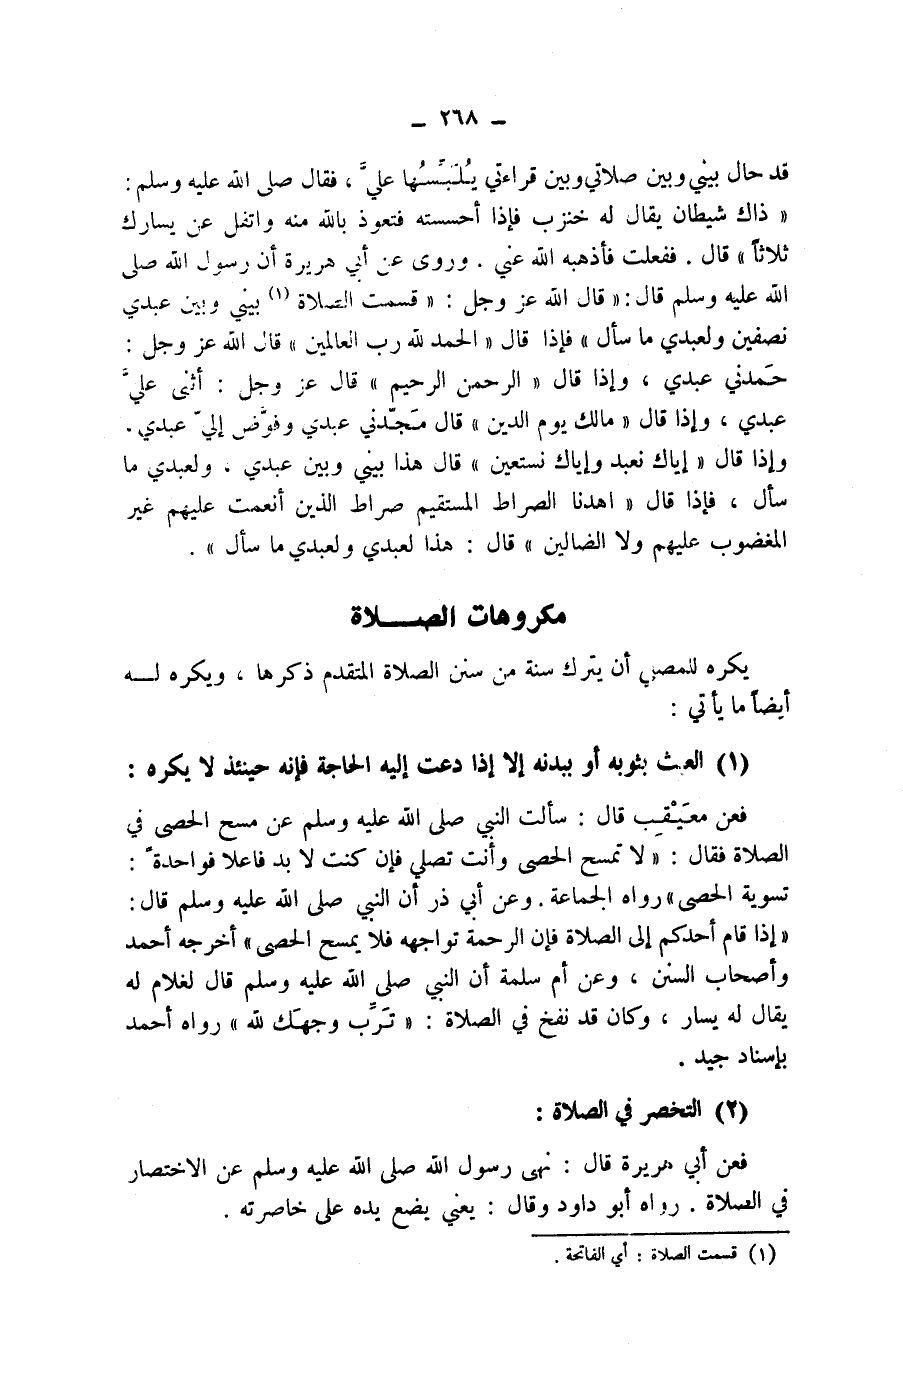 ـ ٢٦٨ ـ
قد حال بيني وبين صلاتي وبين قراءتي يُلَبِّسُها عليَّ ، فقال صلى الله عليه وسلم :
« ذاك شيطان يقال له خنزب فإذا أحسسته فتعوذ بالله منه واتفل عن يسارك
ثلاثاً » قال . ففعلت فأذهبه الله عني . وروى عن أبي هريرة أن رسول الله صلى
الله عليه وسلم قال : « قال الله عز وجل : « قسمت الصلاة (١) بيني وبين عبدي
نصفين ولعبدي ما سأل » فإذا قال « الحمد لله رب العالمين » قال الله عز وجل :
حَمدني عبدي ، وإذا قال « الرحمن الرحيم » قال عز وجل : أثنى عليَّ
عبدي ، وإذا قال « مالك يوم الدين » قال مَجّدني عبدي وفوَّض إليّ عبدي .
وإذا قال « إياك نعبد وإياك نستعين » قال هذا بيني وبين عبدي . ولعبدي ما
سأل ، فإذا قال « اهدنا الصراط المستقيم صراط الذين أنعمت عليهم غير
المغضوب عليهم ولا الضالين » قال : هذا لعبدي ولعبدي ما سأل » .
مكروهات الصـــلاة
يكره للمصلي أن يترك سنة من سنن الصلاة المتقدم ذكرها ، ويكره لـــه
أيضاً ما يأتي :
(١) العبث بثوبه أو ببدنه إلا إذا دعت إليه الحاجة فإنه حينئذ لا يكره :
فعن معَيْقِب قال : سألت النبي صلى الله عليه وسلم عن مسح الحصى في
الصلاة فقال : « لا تمسح الحصى وأنت تصلي فإن كنت لا بد فاعلا فواحدة ً :
تسوية الحصى » رواه الجماعة . وعن أبي ذر أن النبي صلى الله عليه وسلم قال :
« إذا قام أحدكم إلى الصلاة فإن الرحمة تواجهه فلا يمسح الحصى » أخرجه أحمد
وأصحاب السنن ، وعن أم سلمة أن النبي صلى الله عليه وسلم قال لغلام له
يقال له يسار ، وكان قد نفخ في الصلاة : « تَرِّب وجهَك لله » رواه أحمد
بإسناد جيد .
(٢) التخصر في الصلاة :
فعن أبي هريرة قال : نهى رسول الله صلى الله عليه وسلم عن الاختصار
في الصلاة . رواه أبو داود وقال : يعني يضع يده على خاصرته .
(١) قسمت الصلاة : أي الفاتحة .